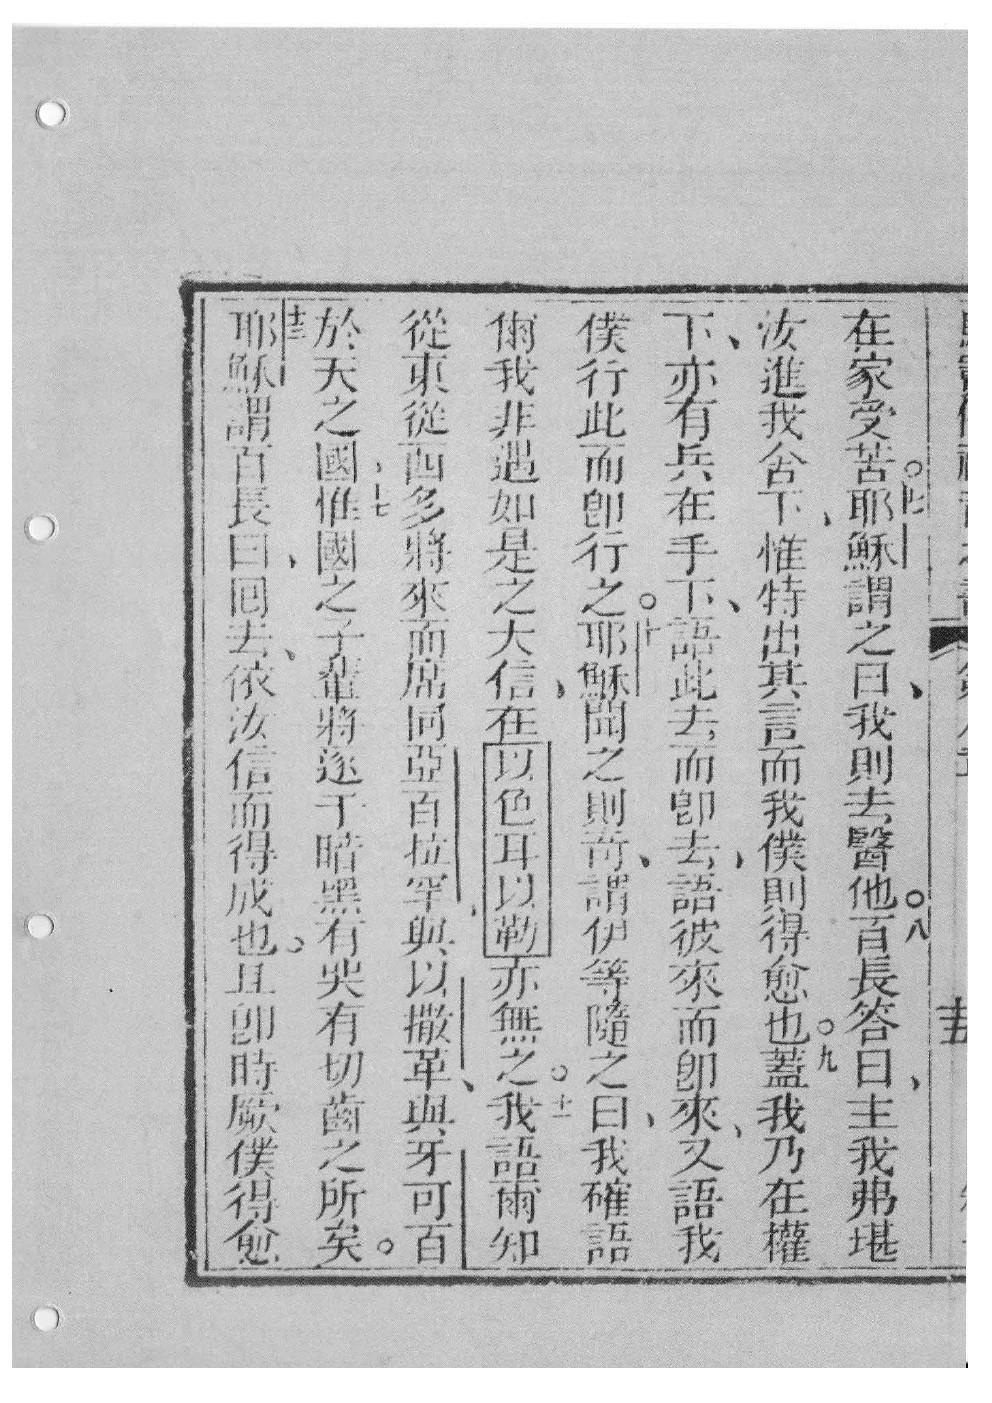 在家受苦○七耶穌謂之曰、我則去醫他○八百長答曰、主我弗堪
汝進我舍下、惟特出其言而我僕則得愈也○九蓋我乃在權
下、亦有兵在手下、語此去而卽去、語彼來而卽來、又語我
僕行此而卽行之○十耶穌聞之則奇、謂伊等隨之曰、我確語
爾我非遇如是之大信、在以色耳以勒亦無之○十一我語爾知
從東從西多將來而席同亞百拉罕、與以撒革、與牙可百
於天之國、十二惟國之子輩將逐于暗黑有哭有切齒之所矣○
十三耶穌謂百長曰、回去、依汝信而得成也○且卽時厥僕得愈